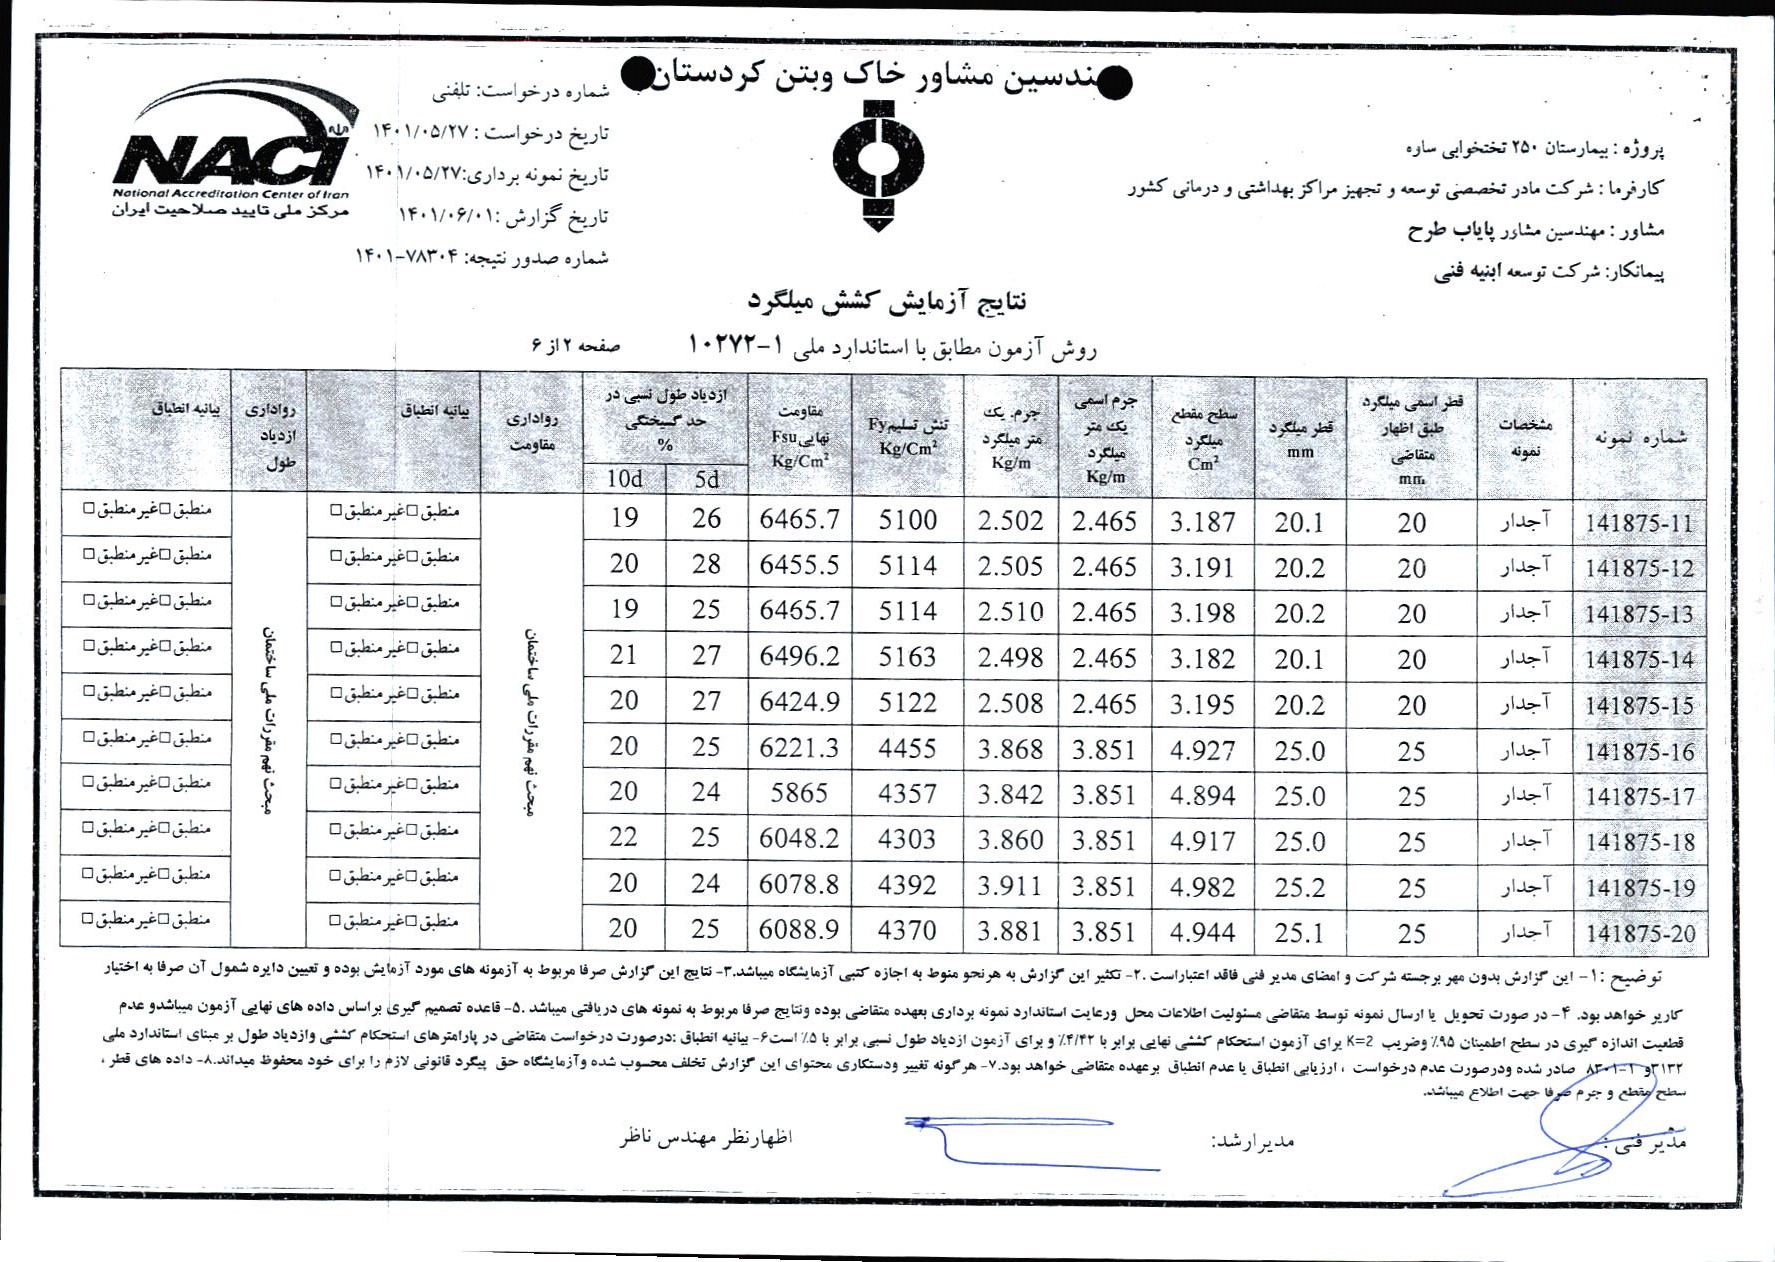 ندسین مشاور خاک وبتن کردستان
پروژه : بیمارستان ۲۵۰ تختخوابی ساوه
کارفرما : شرکت مادر تخصصی توسعه و تجهیز مراکز بهداشتی و درمانی کشور
مشاور : مهندسین مشاور پایاب طرح
پیمانکار: شرکت توسعه ابنیه فنی
شماره درخواست: تلفنی
تاریخ درخواست : ۱۴۰۱/۰۵/۲۷
تاریخ نمونه برداری:۱۴۰۱/۰۵/۲۷
تاریخ گزارش :۱۴۰۱/۰۶/۰۱
شماره صدور نتیجه: ۷۸۳۰۴-۱۴۰۱
NACI
National Accreditation Center of Iran
مرکز ملی تایید صلاحیت ایران
نتایج آزمایش کشش میلگرد
روش آزمون مطابق با استاندارد ملی ۱-۱۰۲۷۲ صفحه ۲ از ۶
شماره نمونه | مشخصات نمونه | قطر اسمی میلگرد طبق اظهار متقاضی mm | قطر میلگرد mm | سطح مقطع میلگرد Cm² | جرم اسمی یک متر میلگرد Kg/m | جرم یک متر میلگرد Kg/m | تنش تسلیم Fy Kg/Cm² | مقاومت نهایی Fsu Kg/Cm² | ازدیاد طول نسبی در حد گسیختگی % 5d | 10d | رواداری مقاومت | بیانیه انطباق | رواداری ازدیاد طول | بیانیه انطباق
141875-11 | آجدار | 20 | 20.1 | 3.187 | 2.465 | 2.502 | 5100 | 6465.7 | 26 | 19 | منطبق□غیرمنطبق□ | منطبق□غیرمنطبق□
141875-12 | آجدار | 20 | 20.2 | 3.191 | 2.465 | 2.505 | 5114 | 6455.5 | 28 | 20 | منطبق□غیرمنطبق□ | منطبق□غیرمنطبق□
141875-13 | آجدار | 20 | 20.2 | 3.198 | 2.465 | 2.510 | 5114 | 6465.7 | 25 | 19 | منطبق□غیرمنطبق□ | منطبق□غیرمنطبق□
141875-14 | آجدار | 20 | 20.1 | 3.182 | 2.465 | 2.498 | 5163 | 6496.2 | 27 | 21 | منطبق□غیرمنطبق□ | منطبق□غیرمنطبق□
141875-15 | آجدار | 20 | 20.2 | 3.195 | 2.465 | 2.508 | 5122 | 6424.9 | 27 | 20 | منطبق□غیرمنطبق□ | منطبق□غیرمنطبق□
141875-16 | آجدار | 25 | 25.0 | 4.927 | 3.851 | 3.868 | 4455 | 6221.3 | 25 | 20 | منطبق□غیرمنطبق□ | منطبق□غیرمنطبق□
141875-17 | آجدار | 25 | 25.0 | 4.894 | 3.851 | 3.842 | 4357 | 5865 | 24 | 20 | منطبق□غیرمنطبق□ | منطبق□غیرمنطبق□
141875-18 | آجدار | 25 | 25.0 | 4.917 | 3.851 | 3.860 | 4303 | 6048.2 | 25 | 22 | منطبق□غیرمنطبق□ | منطبق□غیرمنطبق□
141875-19 | آجدار | 25 | 25.2 | 4.982 | 3.851 | 3.911 | 4392 | 6078.8 | 24 | 20 | منطبق□غیرمنطبق□ | منطبق□غیرمنطبق□
141875-20 | آجدار | 25 | 25.1 | 4.944 | 3.851 | 3.881 | 4370 | 6088.9 | 25 | 20 | منطبق□غیرمنطبق□ | منطبق□غیرمنطبق□
مبحث نهم مقررات ملی ساختمان
مبحث نهم مقررات ملی ساختمان
توضیح :۱- این گزارش بدون مهر برجسته شرکت و امضای مدیر فنی فاقد اعتباراست .۲- تکثیر این گزارش به هرنحو منوط به اجازه کتبی آزمایشگاه میباشد.۳- نتایج این گزارش صرفا مربوط به آزمونه های مورد آزمایش بوده و تعیین دایره شمول آن صرفا به اختیار
کاربر خواهد بود. ۴- در صورت تحویل یا ارسال نمونه توسط متقاضی مسئولیت اطلاعات محل ورعایت استاندارد نمونه برداری بعهده متقاضی بوده ونتایج صرفا مربوط به نمونه های دریافتی میباشد .۵- قاعده تصمیم گیری براساس داده های نهایی آزمون میباشدو عدم
قطعیت اندازه گیری در سطح اطمینان ۹۵٪ وضریب K=2 برای آزمون استحکام کششی نهایی برابر با ۴/۴۲٪ و برای آزمون ازدیاد طول نسبی برابر با ۵٪ است۶- بیانیه انطباق :درصورت درخواست متقاضی در پارامترهای استحکام کششی وازدیاد طول بر مبنای استاندارد ملی
۳۱۳۲و ۱-۸۳۰۱ صادر شده ودرصورت عدم درخواست ، ارزیابی انطباق یا عدم انطباق برعهده متقاضی خواهد بود.۷- هرگونه تغییر ودستکاری محتوای این گزارش تخلف محسوب شده وآزمایشگاه حق پیگرد قانونی لازم را برای خود محفوظ میداند.۸- داده های قطر ،
سطح مقطع و جرم صرفا جهت اطلاع میباشد.
مدیر فنی : مدیرارشد: اظهارنظر مهندس ناظر